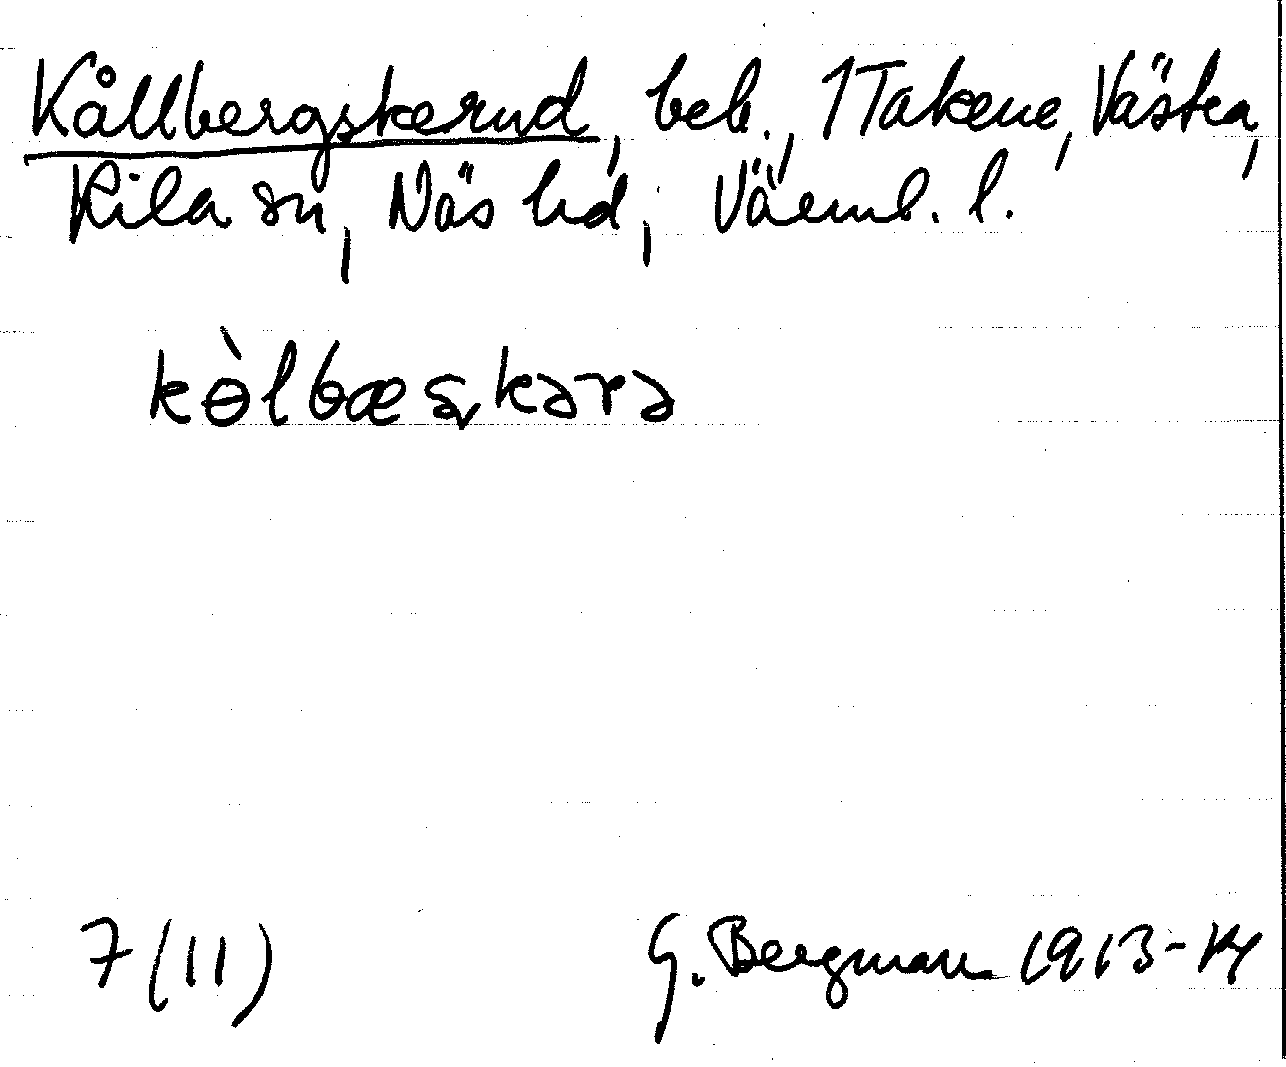 Kållbergskerud, beb., 1 Takene, Västra,
Kila sn, Näs hd, Värml. l.
kɵ̀lbæʂkərə
7 (11)
G. Bergman 1913-14